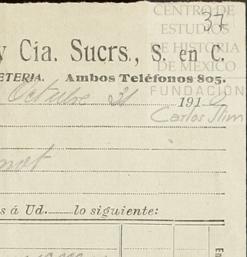 37
CENTRO DE
ESTUDIOS
DE HISTORIA
DE MEXICO
FUNDACIÓN
Carlos Slim
y Cia. Sucrs., S. en C.
ETERIA. Ambos Teléfonos 805.
Octubre 31 191
s á Ud. lo siguiente: